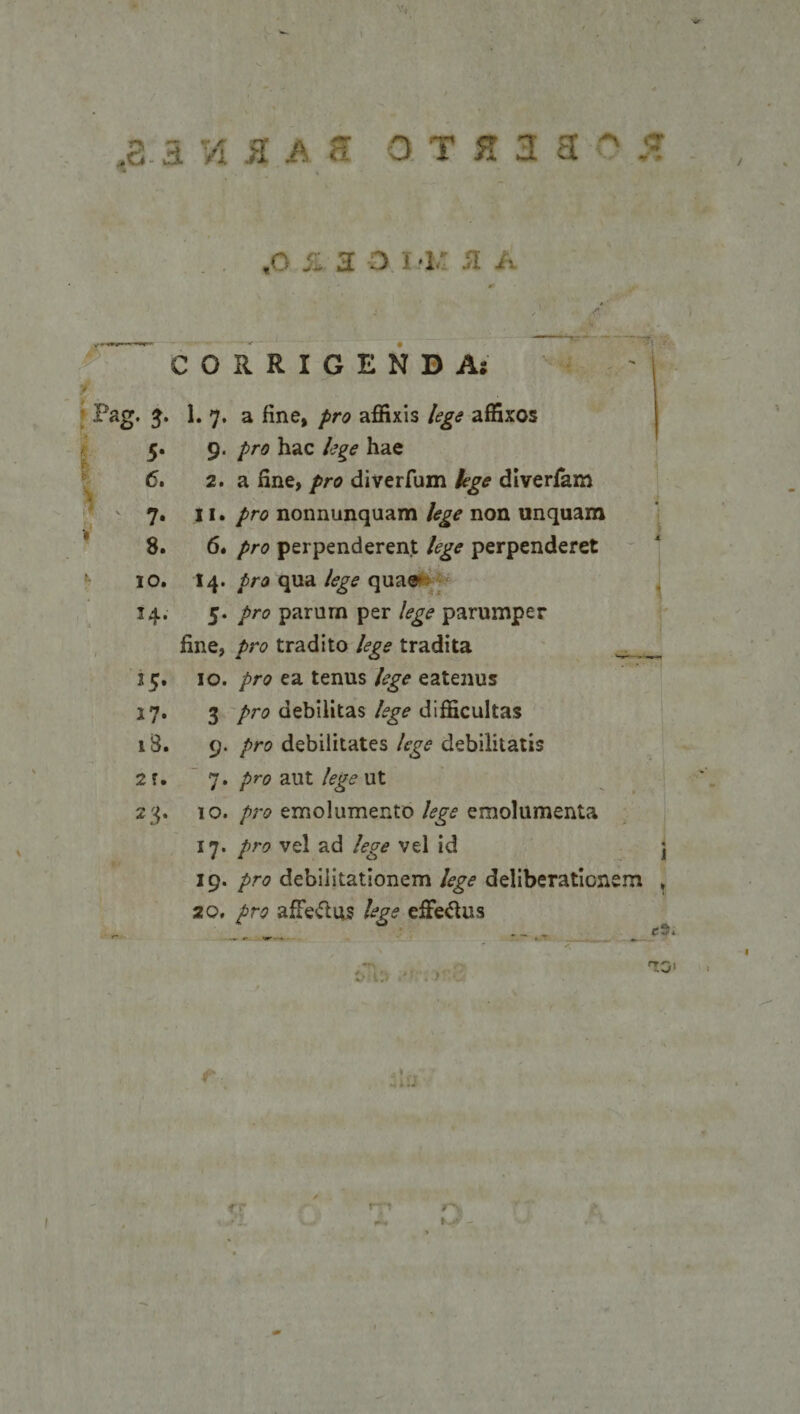 CORRIGENDA:
Pag. 3. l. 7. a fine, pro affixis lege affixos
5. 9. pro hac lege hae
6. 2. a fine, pro diverſum lege diverſam
7. 11. pro nonnunquam lege non unquam
8. 6. pro perpenderent lege perpenderet
10. 14. pro qua lege quae
14. 5. pro parum per lege parumper
fine, pro tradito lege tradita
15. 10. pro ea tenus lege eatenus
17. 3 pro debilitas lege difficultas
18. 9. pro debilitates lege debilitatis
21. 7. pro aut lege ut
23. 10. pro emolumento lege emolumenta
17. pro vel ad lege vel id
19. pro debilitationem lege deliberationem
20. pro affectus lege effectus